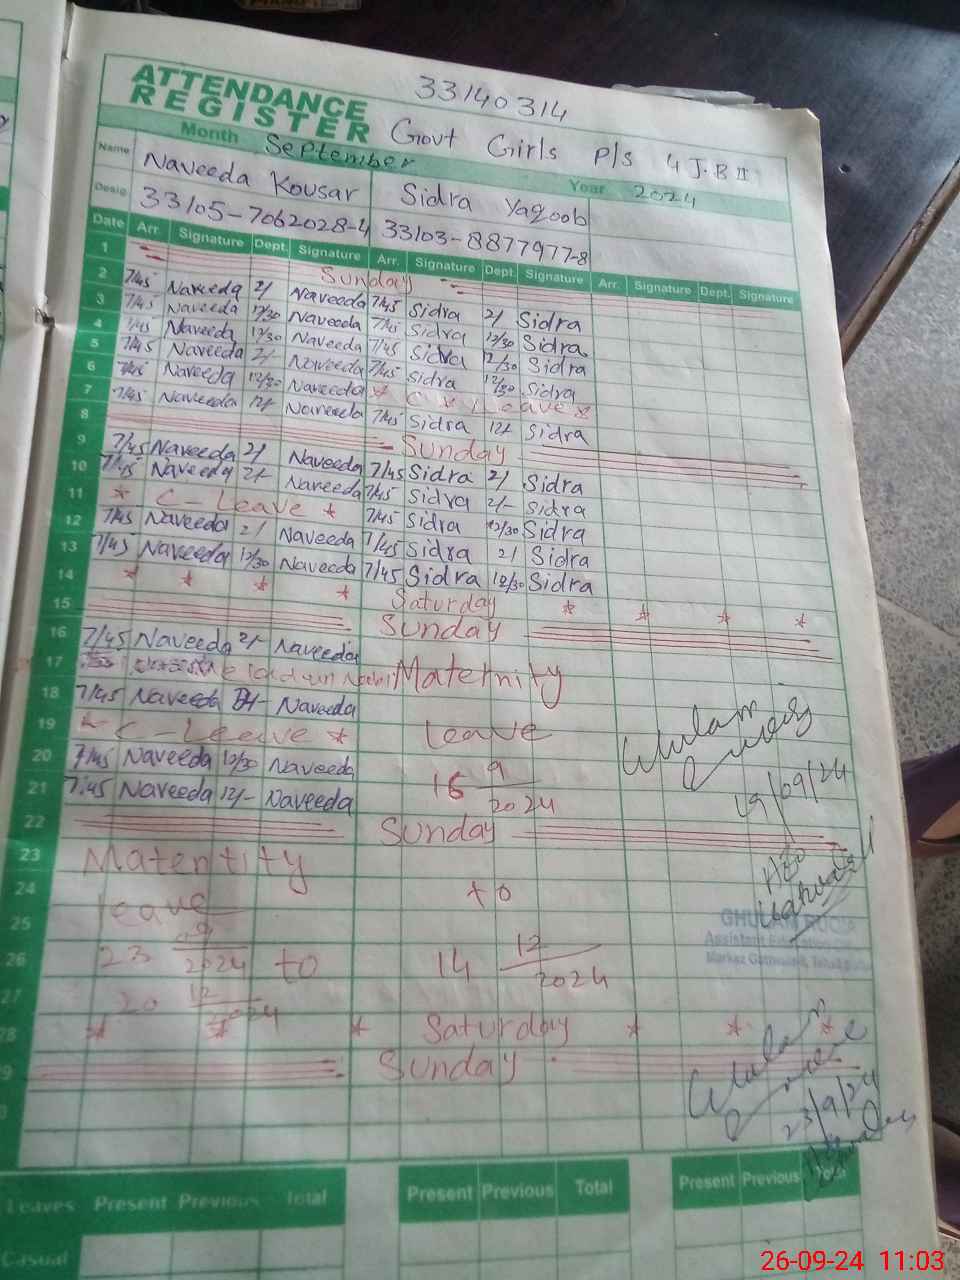 33140314
ATTENDANCE
REGISTER
Govt Girls P/S 4 J.B II
Month September Year 2024
Name Naveeda Kousar Sidra Yaqoob
Desig 33105-7062028-4 33103-8877977-8
Date Arr. Signature Dept. Signature Arr. Signature Dept. Signature Arr. Signature Dept. Signature
1 Sunday
2 7/45 Naveeda 2/ Naveeda 7/45 Sidra 2/ Sidra
3 7/45 Naveeda 12/30 Naveeda 7/45 Sidra 12/30 Sidra
4 7/45 Naveeda 12/30 Naveeda 7/45 Sidra 12/30 Sidra
5 7/45 Naveeda 2/ Naveeda 7/45 Sidra 12/30 Sidra
6 7/45 Naveeda 12/30 Naveeda * C * Leave *
7 7/45 Naveeda 12/ Naveeda 7/45 Sidra 12/ Sidra
8 Sunday
9 7/45 Naveeda 2/ Naveeda 7/45 Sidra 2/ Sidra
10 7/45 Naveeda 2/- Naveeda 7/45 Sidra 2/- Sidra
11 * C - Leave * 7/45 Sidra 12/30 Sidra
12 7/45 Naveeda 2/ Naveeda 7/45 Sidra 2/ Sidra
13 7/45 Naveeda 12/30 Naveeda 7/45 Sidra 12/30 Sidra
14 * * * * Saturday * * * *
15 Sunday
16 7/45 Naveeda 2/- Naveeda
17 Maternity
18 7/45 Naveeda Naveeda
19 C - Leave * Leave
20 7/45 Naveeda 12/30 Naveeda 16 9/2024
21 7:45 Naveeda 12/- Naveeda
19/09/24
22 Sunday
23 Matentity
24 leave to
25
26 23 9/2024 to 14 12/2024
27 20 12/2024
GHULAM
Assistant Education
Markaz
28 * * * Saturday * * *
29 Sunday
23/9/24
Leaves Present Previous Total Present Previous Total Present Previous Total
Casual
26-09-24 11:03